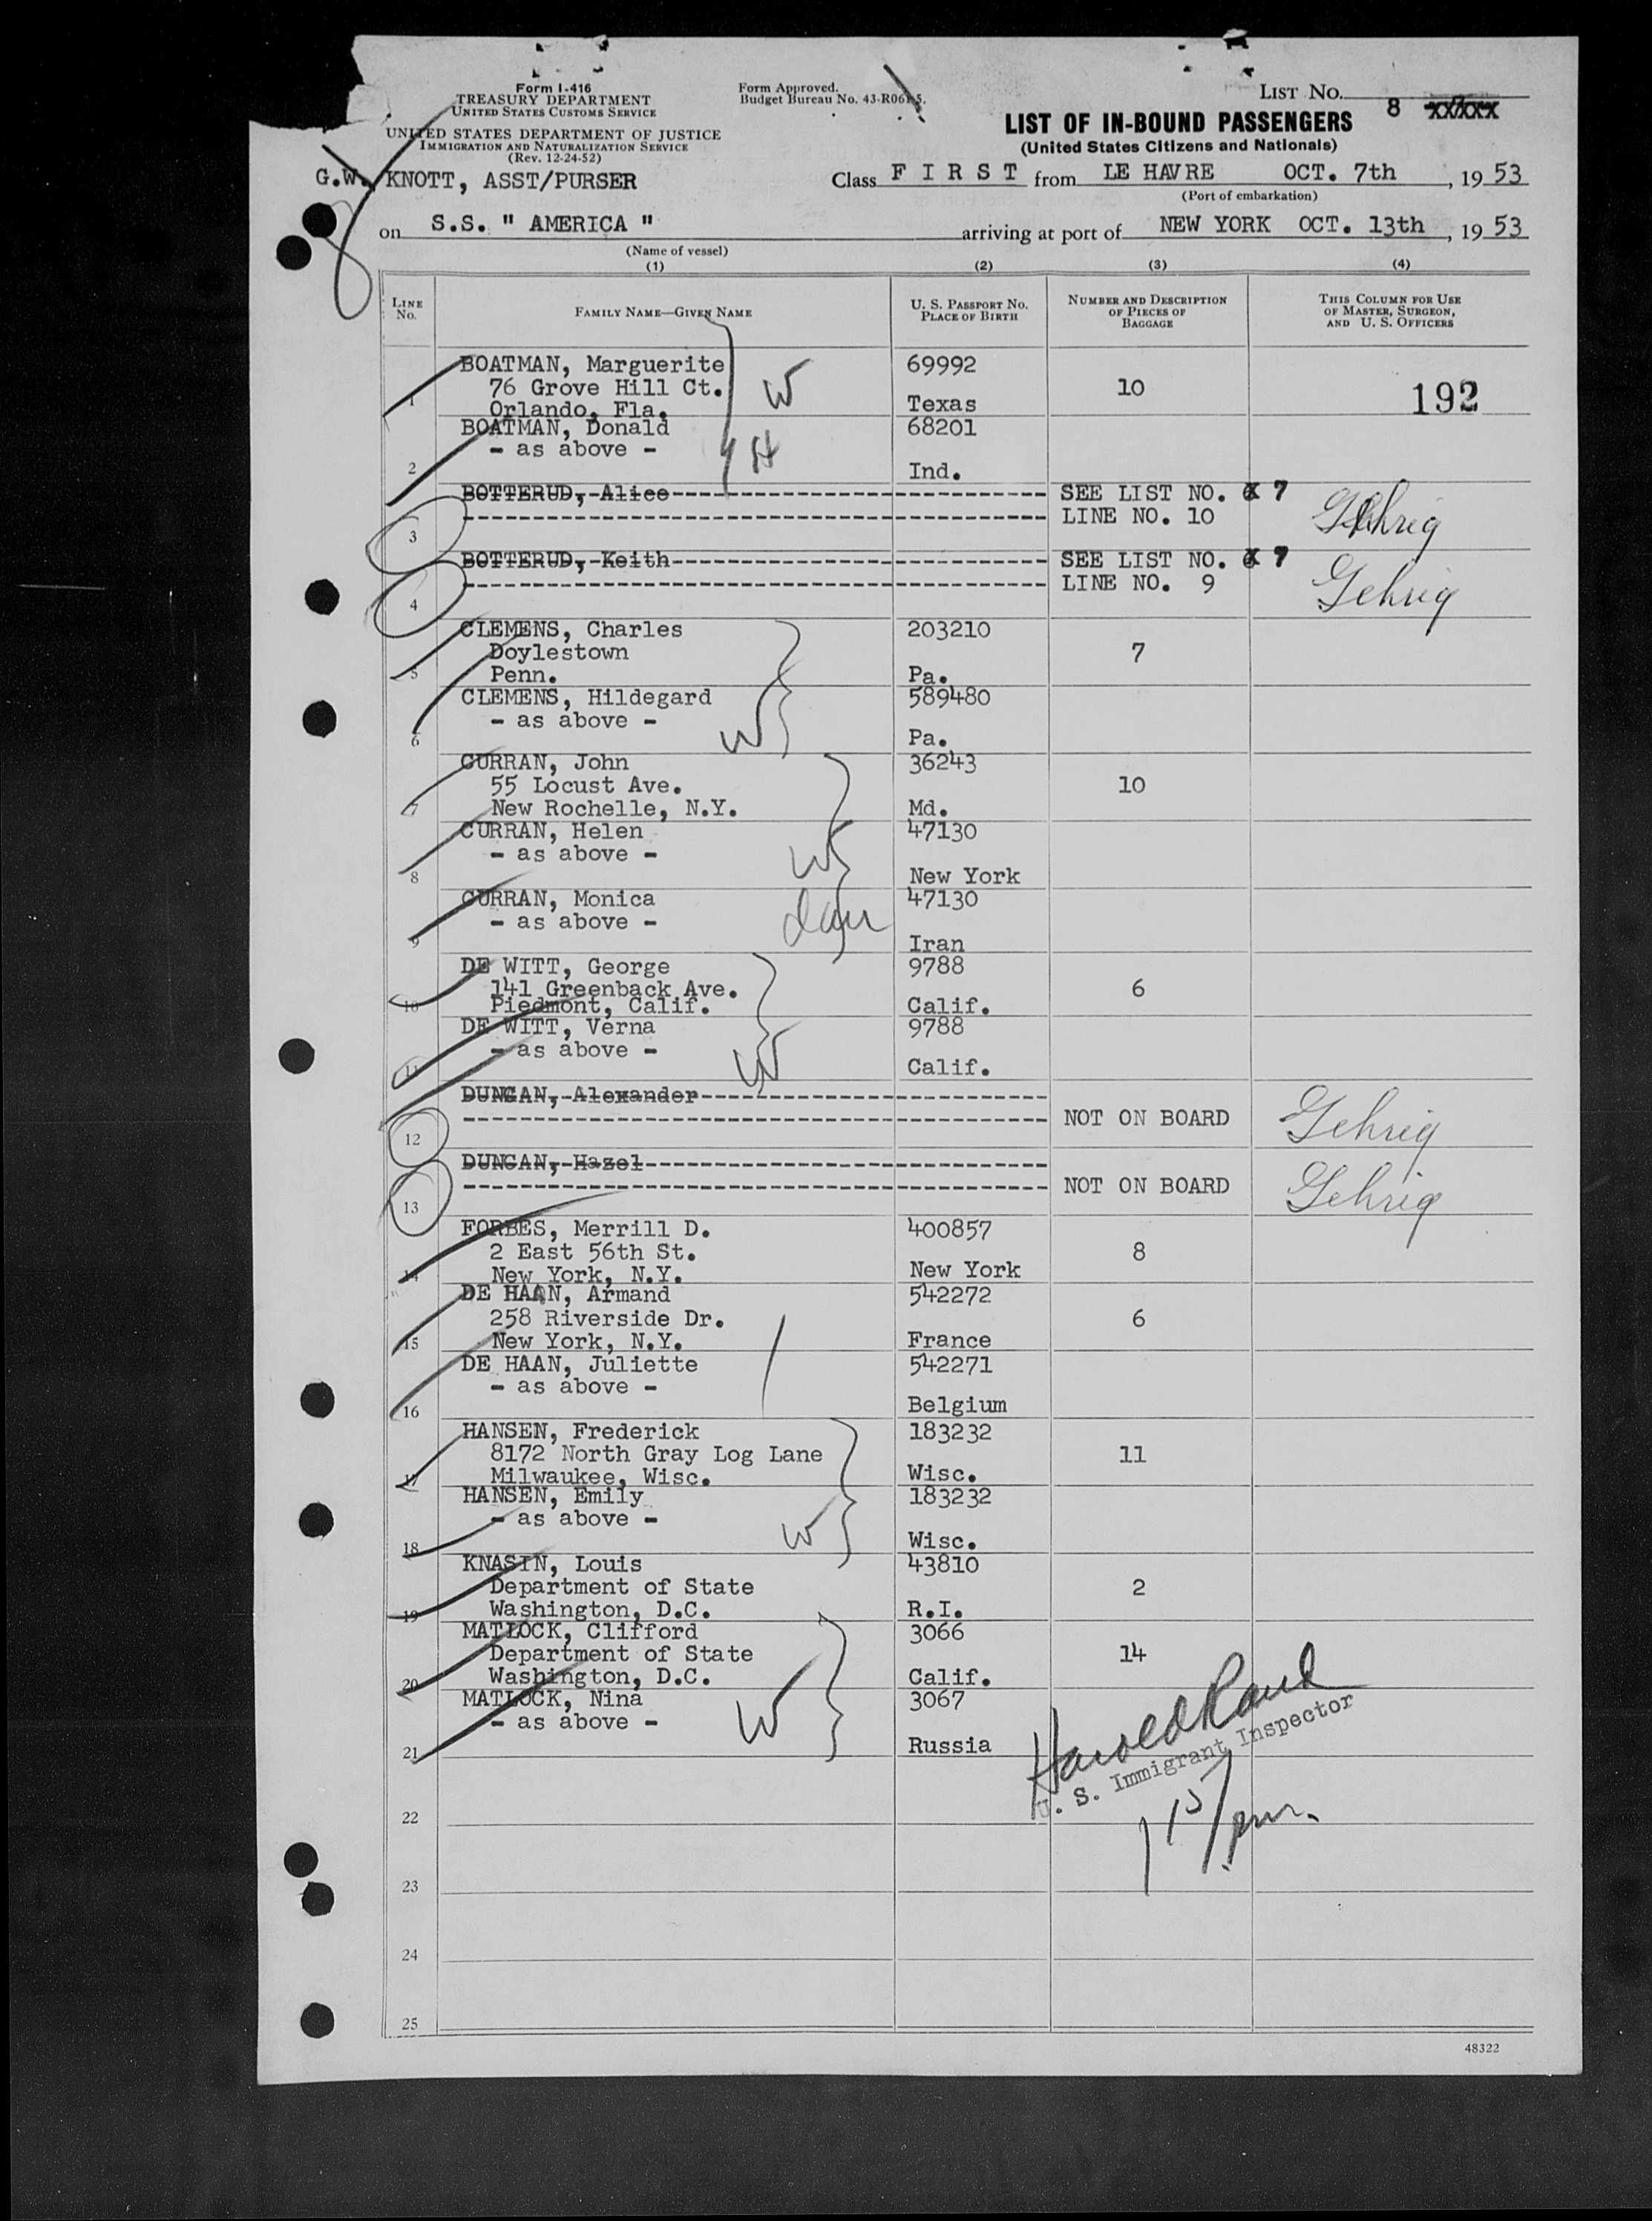 Form I-416
TREASURY DEPARTMENT
UNITED STATES CUSTOMS SERVICE
UNITED STATES DEPARTMENT OF JUSTICE
IMMIGRATION AND NATURALIZATION SERVICE
(Rev. 12-24-52)
Form Approved.
Budget Bureau No. 43-R06
LIST NO. 8
LIST OF IN-BOUND PASSENGERS
(United States Citizens and Nationals)
G.W. KNOTT, ASST/PURSER
Class F I R S T from LE HAVRE OCT. 7th, 19 53
(Port of embarkation)
on S.S. " AMERICA " arriving at port of NEW YORK OCT. 13th, 19 53
(Name of vessel)
(1) (2) (3) (4)
LINE NO. FAMILY NAME—GIVEN NAME U. S. PASSPORT NO. PLACE OF BIRTH NUMBER AND DESCRIPTION OF PIECES OF BAGGAGE THIS COLUMN FOR USE OF MASTER, SURGEON, AND U. S. OFFICERS
BOATMAN, Marguerite 69992
76 Grove Hill Ct. W 10 192
1 Orlando, Fla. Texas
BOATMAN, Donald 68201
- as above - H
2 Ind.
BOTTERUD, Alice SEE LIST NO. 7
3 LINE NO. 10 Gehrig
BOTTERUD, Keith SEE LIST NO. 7
4 LINE NO. 9 Gehrig
CLEMENS, Charles 203210
Doylestown 7
5 Penn. Pa.
CLEMENS, Hildegard 589480
- as above - W
6 Pa.
CURRAN, John 36243
55 Locust Ave. 10
7 New Rochelle, N.Y. Md.
CURRAN, Helen 47130
- as above - W
8 New York
CURRAN, Monica 47130
- as above - dau
9 Iran
DE WITT, George 9788
141 Greenback Ave. 6
10 Piedmont, Calif. Calif.
DE WITT, Verna 9788
- as above - W
11 Calif.
DUNCAN, Alexander
12 NOT ON BOARD Gehrig
DUNCAN, Hazel
13 NOT ON BOARD Gehrig
FORBES, Merrill D. 400857
2 East 56th St. 8
14 New York, N.Y. New York
DE HAAN, Armand 542272
258 Riverside Dr. 6
15 New York, N.Y. France
DE HAAN, Juliette 542271
- as above -
16 Belgium
HANSEN, Frederick 183232
8172 North Gray Log Lane 11
17 Milwaukee, Wisc. Wisc.
HANSEN, Emily 183232
- as above - W
18 Wisc.
KNASIN, Louis 43810
Department of State 2
19 Washington, D.C. R.I.
MATLOCK, Clifford 3066
Department of State 14
20 Washington, D.C. Calif.
MATLOCK, Nina 3067
- as above - W
21 Russia
Harold Rand
U. S. Immigrant Inspector
1 15/pm.
22
23
24
25
48322